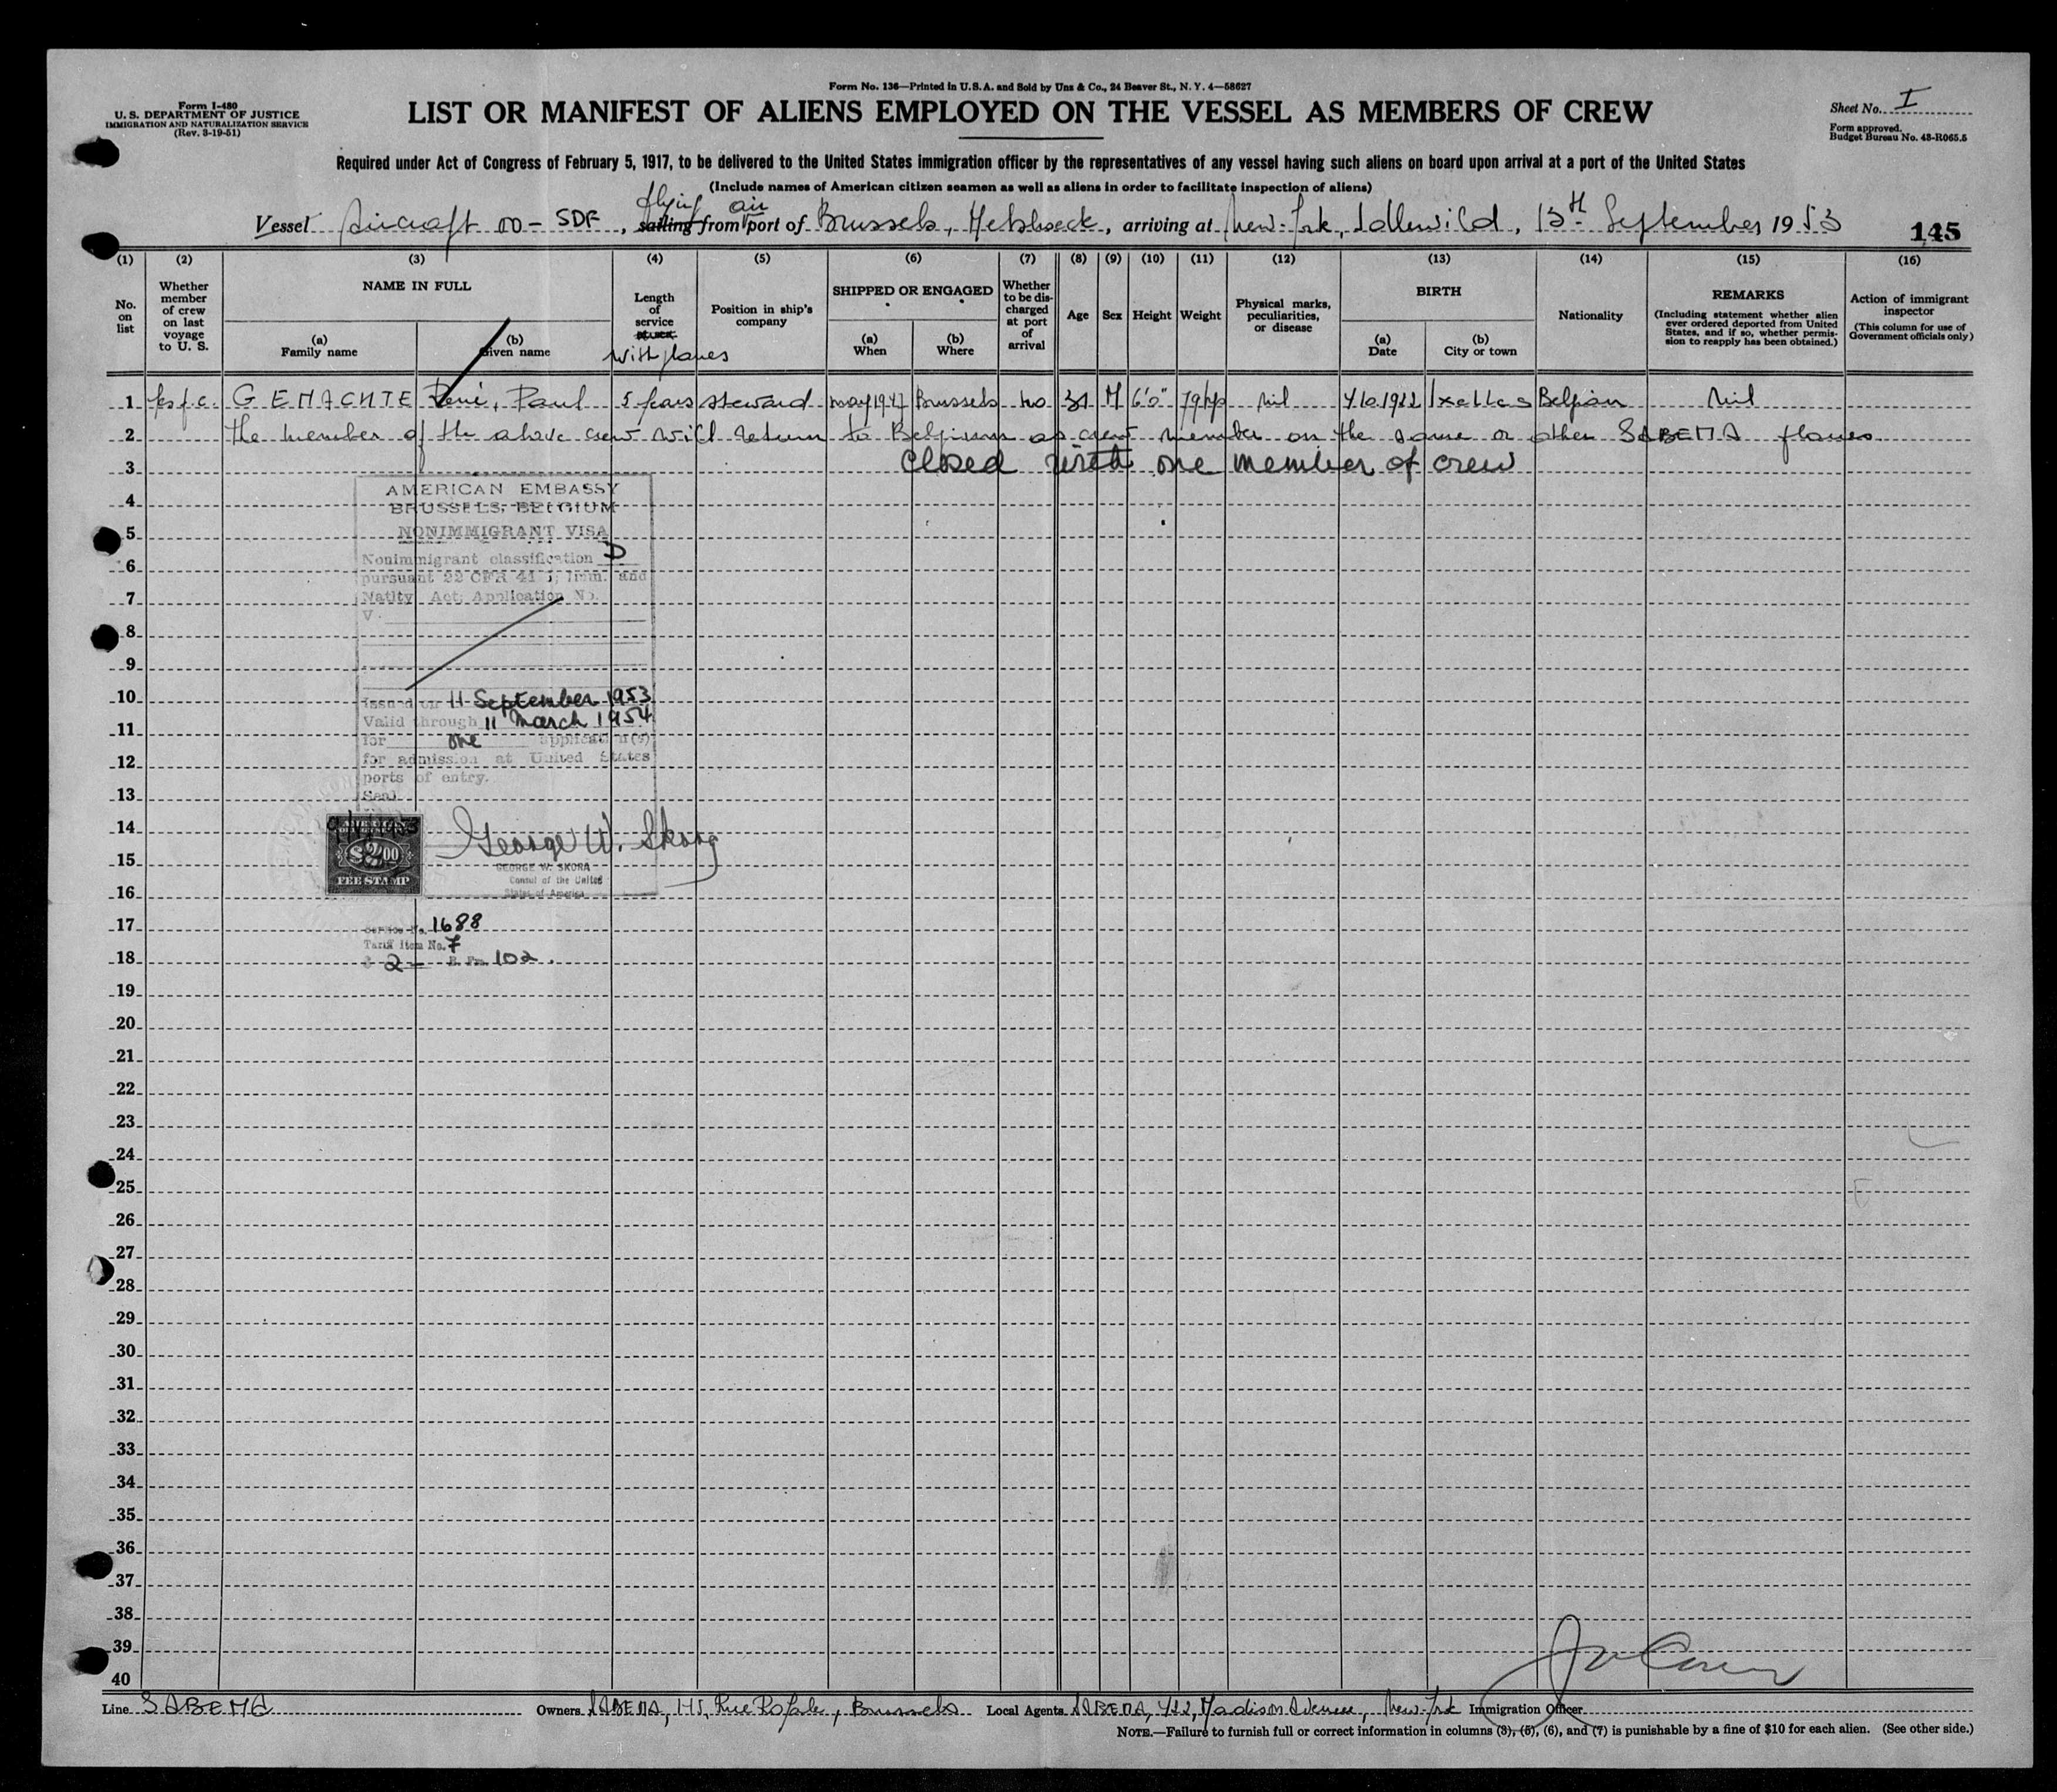 Form No. 136—Printed in U.S.A. and Sold by Unz & Co., 24 Beaver St., N. Y. 4—58627
Form I-480
U. S. DEPARTMENT OF JUSTICE
IMMIGRATION AND NATURALIZATION SERVICE
(Rev. 3-19-51)
LIST OR MANIFEST OF ALIENS EMPLOYED ON THE VESSEL AS MEMBERS OF CREW
Sheet No. I
Form approved.
Budget Bureau No. 43-R065.5
Required under Act of Congress of February 5, 1917, to be delivered to the United States immigration officer by the representatives of any vessel having such aliens on board upon arrival at a port of the United States
(Include names of American citizen seamen as well as aliens in order to facilitate inspection of aliens)
flying air
Vessel Aircraft OO-SDF, sailing from port of Brussels, Melsbroeck, arriving at New-York, Idlewild, 13th September 1953
145
(1) (2) (3) (4) (5) (6) (7) (8) (9) (10) (11) (12) (13) (14) (15) (16)
No. on list
Whether member of crew on last voyage to U. S.
NAME IN FULL
(a) Family name
(b) Given name
Length of service at sea
with planes
Position in ship's company
SHIPPED OR ENGAGED
(a) When
(b) Where
Whether to be discharged at port of arrival
Age
Sex
Height
Weight
Physical marks, peculiarities, or disease
BIRTH
(a) Date
(b) City or town
Nationality
REMARKS
(Including statement whether alien ever ordered deported from United States, and if so, whether permission to reapply has been obtained.)
Action of immigrant inspector
(This column for use of Government officials only)
1 GEMACHTE René, Paul 5 years steward may 1947 Brussels no 31 M 6'0" nil Ixelles Belgian Nil
2 the member of the above crew will return to Belgium as crew member on the same or other SABENA planes
3 closed with one member of crew
AMERICAN EMBASSY
4
BRUSSELS, BELGIUM
5
NONIMMIGRANT VISA
Nonimmigrant classification D
6
pursuant 22 CFR 41 Imm. and
7
Natlty Act; Application No.
V.
8
9
10
Issued on 11 September 1953
Valid through 11 March 1954
11
for one application(s)
12
for admission at United States
ports of entry.
13
Seal
14
George W. Skora
$2.00
15
GEORGE W. SKORA
FEE STAMP
Consul of the United
16
States of America
17
Service No. 1688
Tariff Item No. 7
18
2- 102.
19
20
21
22
23
24
25
26
27
28
29
30
31
32
33
34
35
36
37
38
39
40
Line SABENA Owners SABENA, 145, Rue Royale, Brussels Local Agents SABENA, 422, Madison Avenue, New-York Immigration Officer
NOTE.—Failure to furnish full or correct information in columns (3), (5), (6), and (7) is punishable by a fine of $10 for each alien. (See other side.)